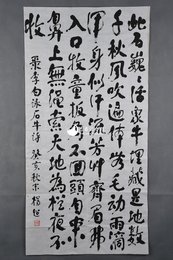 此石巍巍活象牛埋藏是地數
千秋風吹遍體無毛動雨滴
渾身似汗流芳草齊眉弗
入口牧童扳角不回頭自來
鼻上無繩索天地為欄夜不
收
錄李自成石牛詩 癸亥秋末 楊